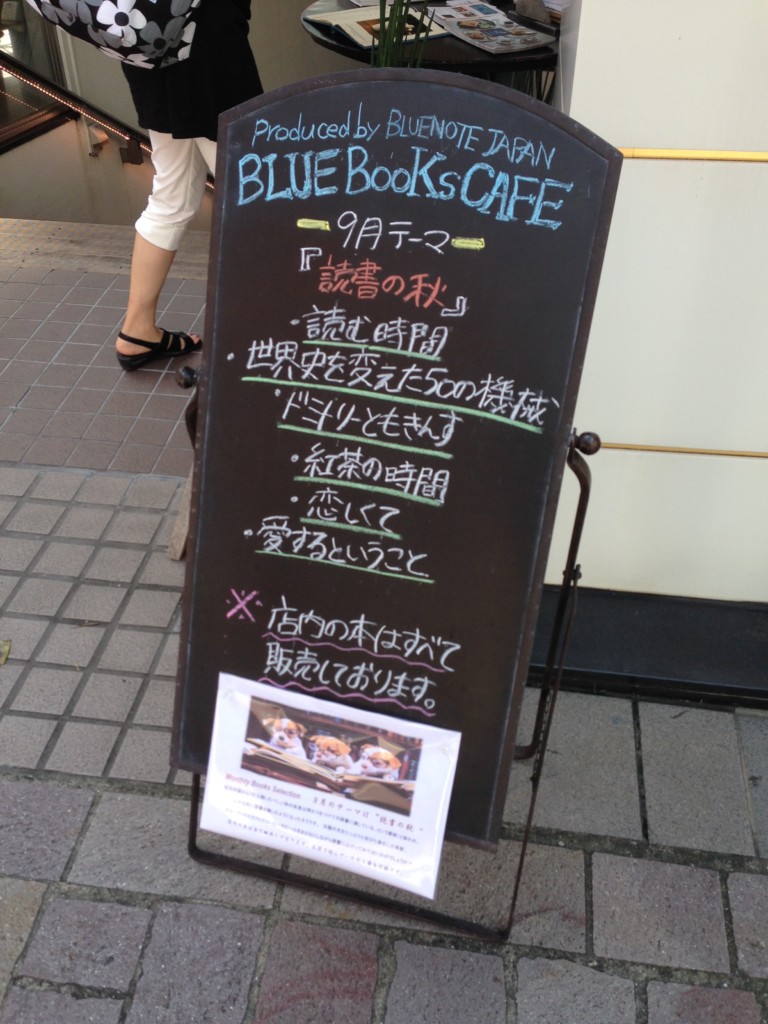 Produced by BLUENOTE JAPAN
BLUE BooKs CAFE
9月テーマ
『読書の秋』
・読む時間
・世界史を変えた50の機械
・ドミトリーともきんす
・紅茶の時間
・恋しくて
・愛するということ
※店内の本はすべて
販売しております。
Monthly Books Selection 9月のテーマは"読書の秋"